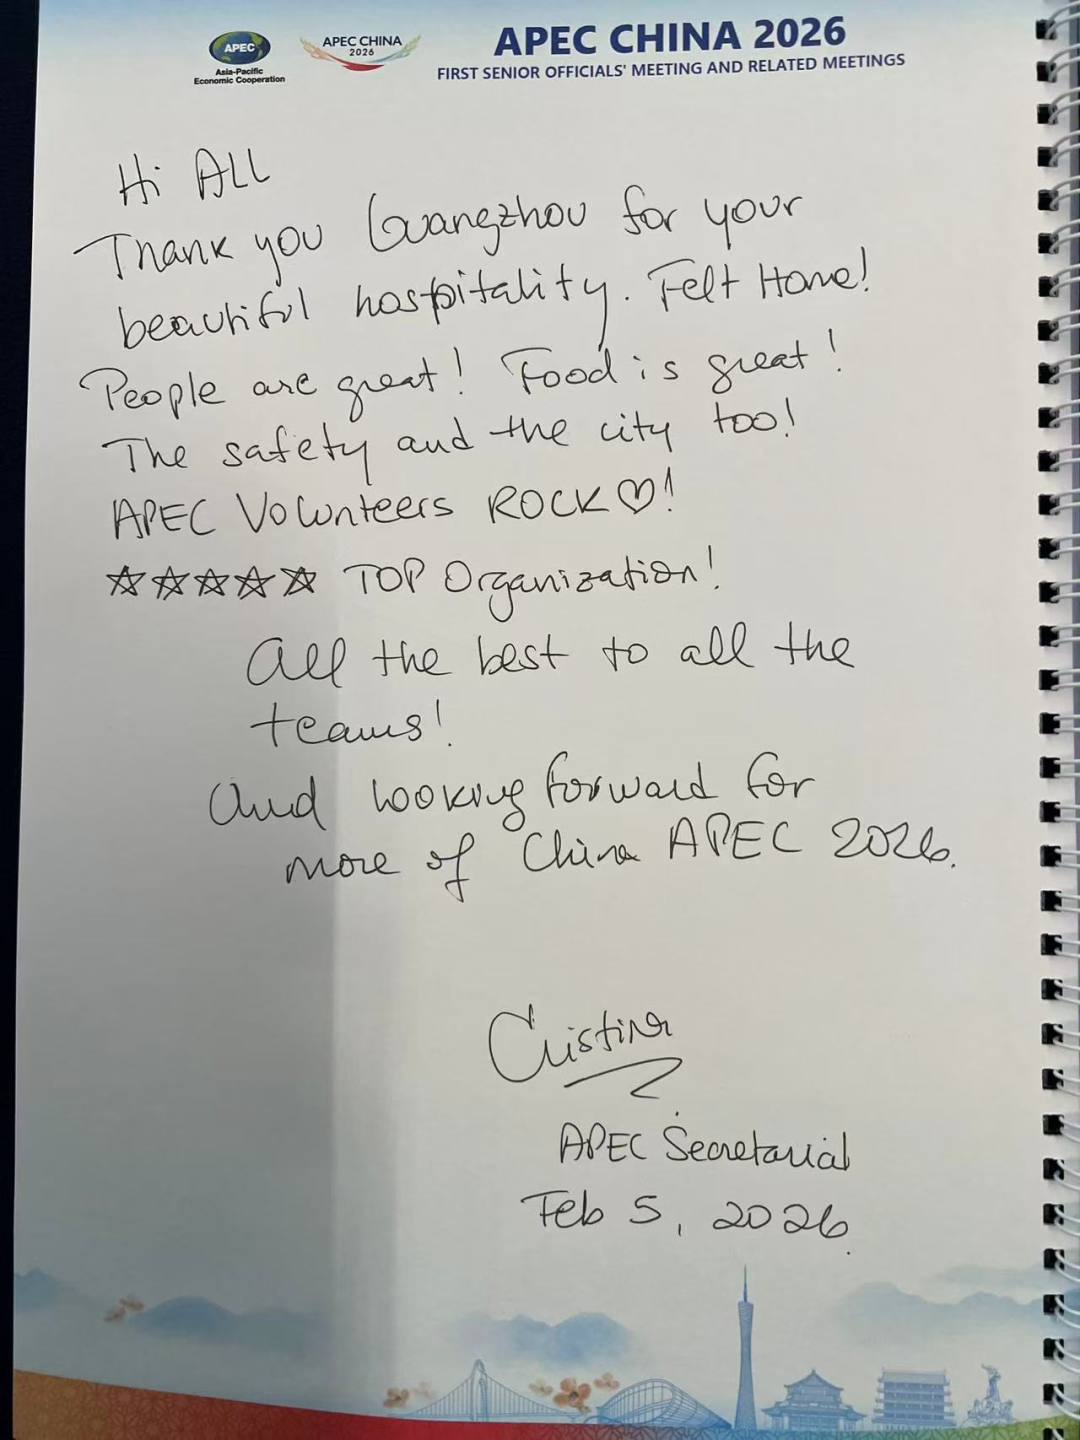 APEC
Asia-Pacific
Economic Cooperation
APEC CHINA
2026
APEC CHINA 2026
FIRST SENIOR OFFICIALS' MEETING AND RELATED MEETINGS
Hi ALL
Thank you Guangzhou for your
beautiful hospitality. Felt Home!
People are great! Food is great!
The safety and the city too!
APEC Volunteers ROCK♡!
☆☆☆☆☆ TOP Organization!
All the best to all the
teams!
And looking forward for
more of China APEC 2026.
Cristina
APEC Secretariat
Feb 5, 2026.